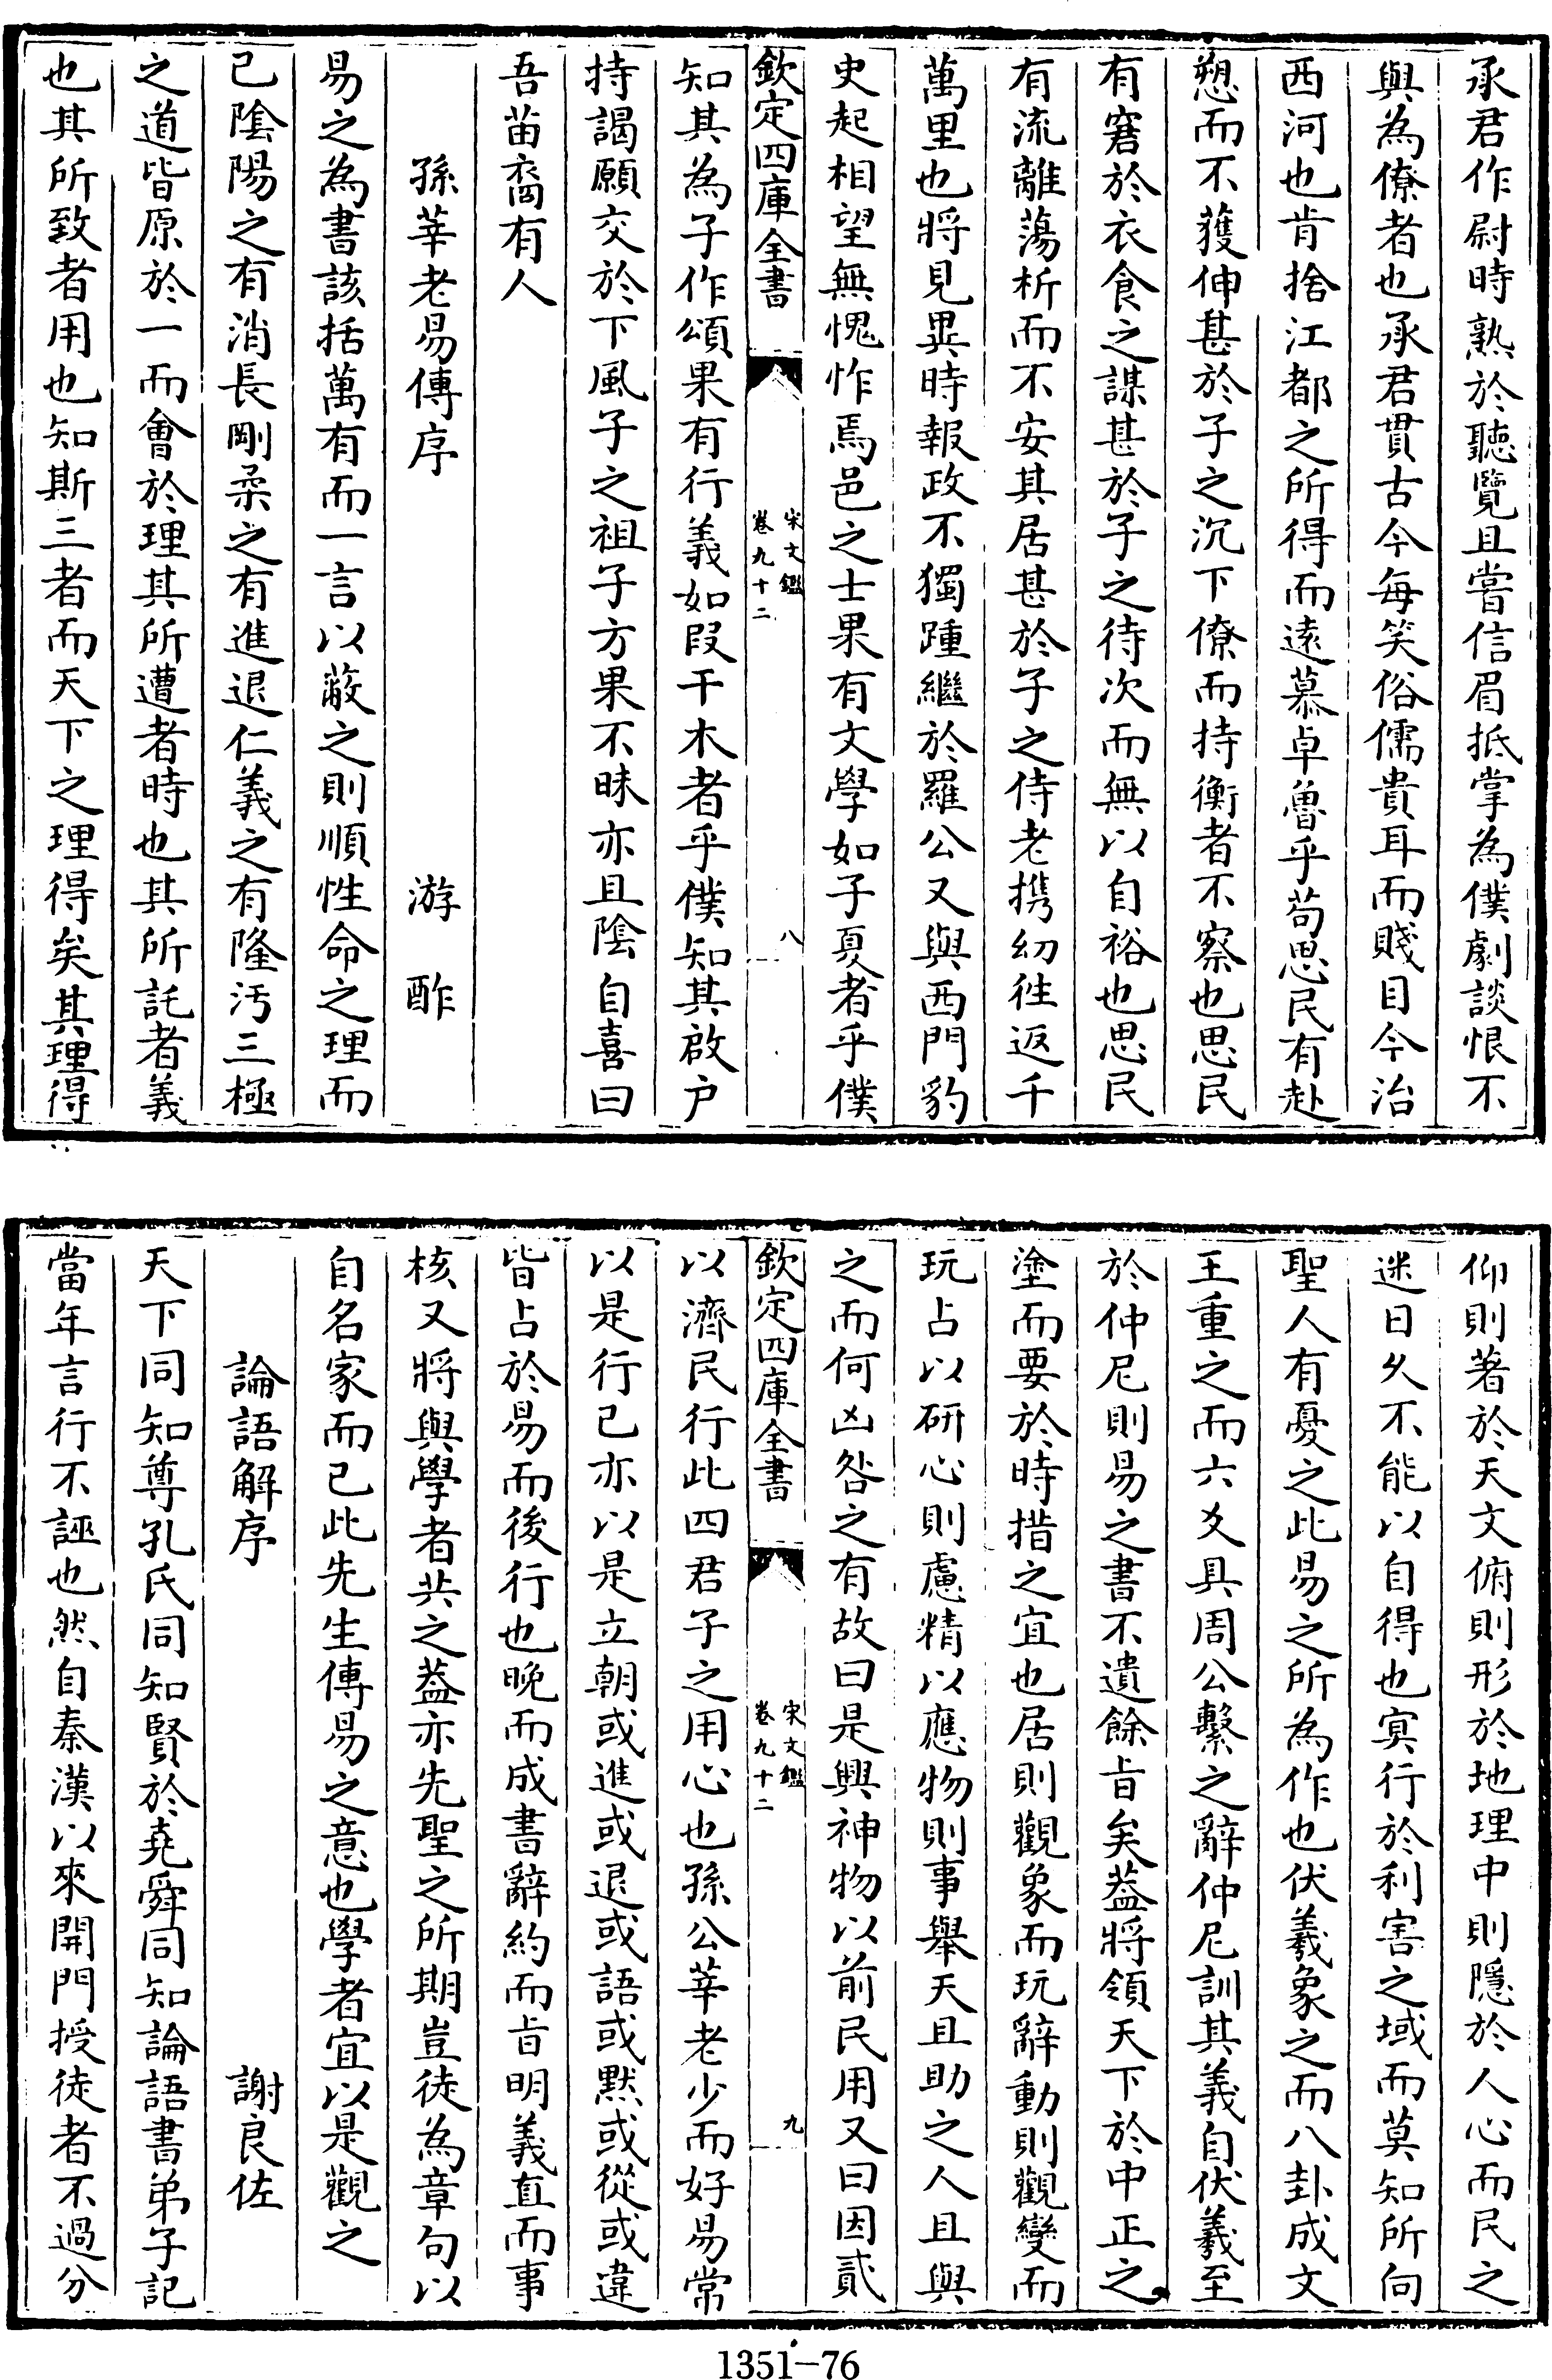 承君作尉時熟於聽覽且嘗信眉抵掌為僕劇談恨不
與為僚者也承君貫古今每笑俗儒貴耳而賤目今治
西河也肯捨江都之所得而遠慕卓魯乎苟思民有赴
愬而不獲伸甚於子之沉下僚而持衡者不察也思民
有窘於衣食之謀甚於子之待次而無以自裕也思民
有流離蕩析而不安其居甚於子之侍老擕幼徃返千
萬里也將見異時報政不獨踵繼於羅公又與西門豹
史起相望無愧怍焉邑之士果有文學如子夏者乎僕
欽定四庫全書
宋文鑑
卷九十二
八
知其為子作頌果有行義如段干木者乎僕知其啟户
持謁願交於下風子之祖子方果不昧亦且陰自喜曰
吾苗裔有人
孫莘老易傳序
游酢
易之為書該括萬有而一言以蔽之則順性命之理而
已陰陽之有消長剛柔之有進退仁義之有隆污三極
之道皆原於一而會於理其所遭者時也其所託者義
也其所致者用也知斯三者而天下之理得矣其理得
仰則著於天文俯則形於地理中則隱於人心而民之
迷日久不能以自得也冥行於利害之域而莫知所向
聖人有憂之此易之所為作也伏羲象之而八卦成文
王重之而六爻具周公繫之辭仲尼訓其義自伏羲至
於仲尼則易之書不遺餘旨矣葢將領天下於中正之
塗而要於時措之宜也居則觀象而玩辭動則觀變而
玩占以研心則慮精以應物則事舉天且助之人且與
之而何凶咎之有故曰是興神物以前民用又曰因貳
欽定四庫全書
宋文鑑
卷九十二
九
以濟民行此四君子之用心也孫公莘老少而好易常
以是行己亦以是立朝或進或退或語或默或從或違
皆占於易而後行也晚而成書辭約而旨明義直而事
核又將與學者共之葢亦先聖之所期豈徒為章句以
自名家而已此先生傳易之意也學者宜以是觀之
論語解序
謝良佐
天下同知尊孔氏同知賢於堯舜同知論語書弟子記
當年言行不誣也然自秦漢以來開門授徒者不過分
1351-76